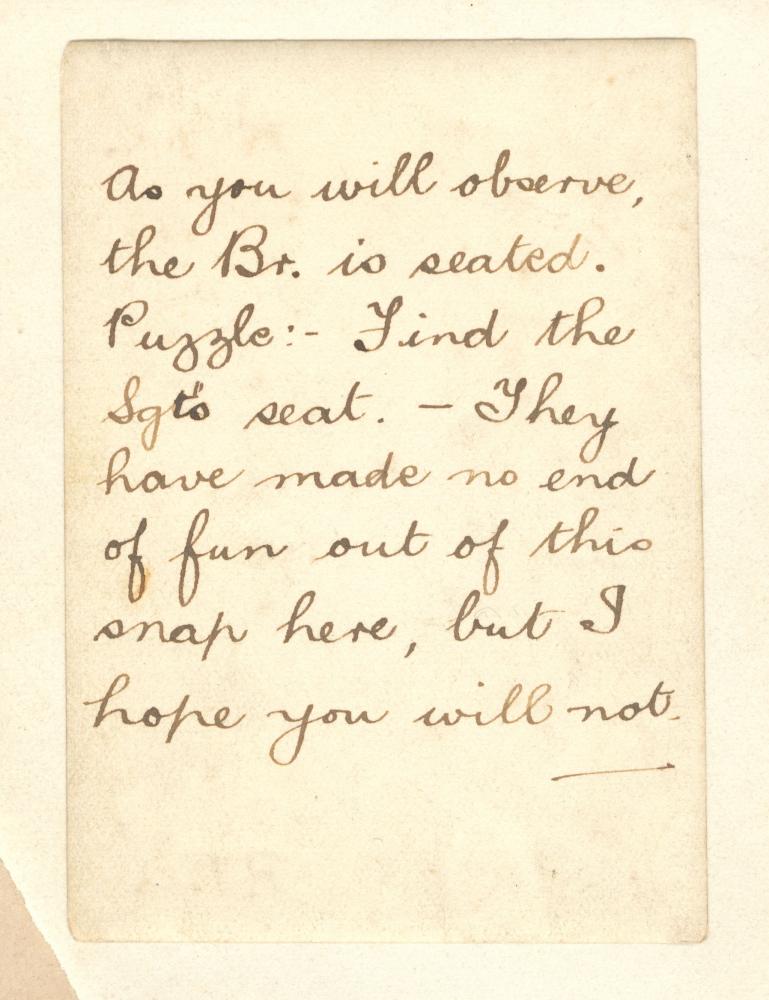 As you will observe,
the Br. is seated.
Puzzle:- Find the
Sgt's seat. - They
have made no end
of fun out of this
snap here, but I
hope you will not.